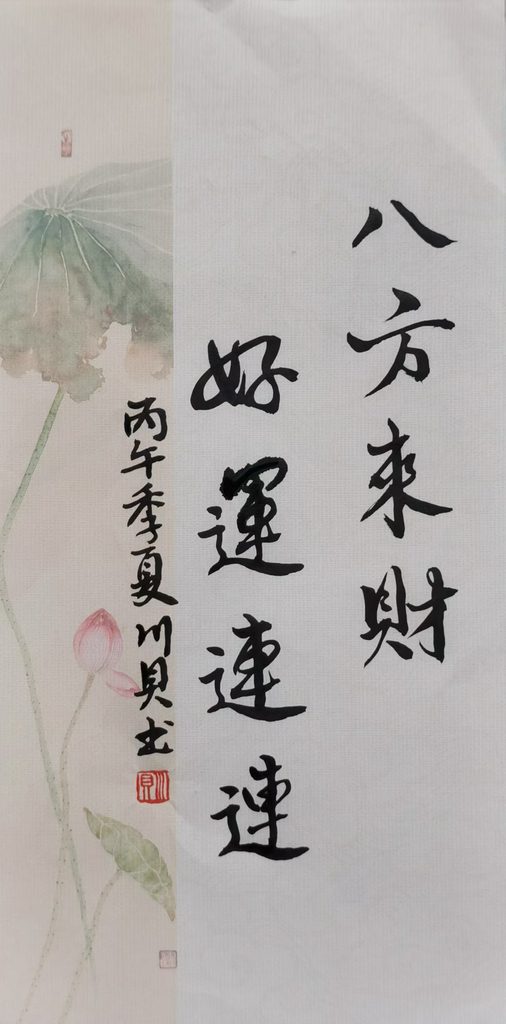 八方來財
好運連連
丙午季夏川貝书
川貝